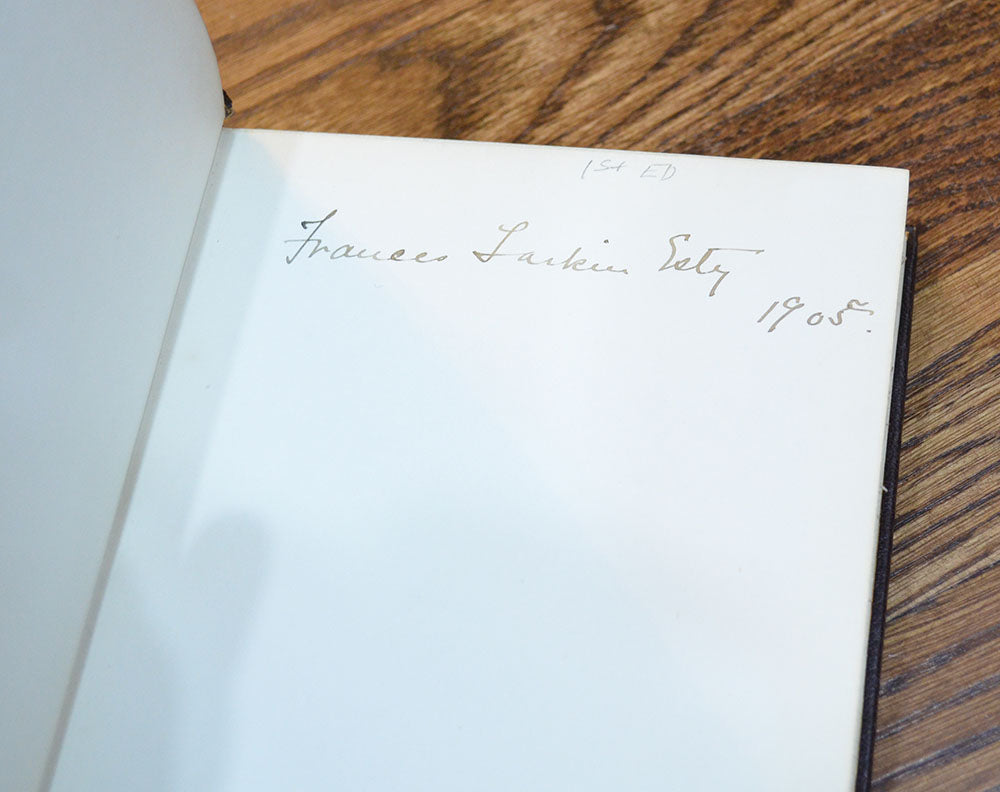 1st ED
Frances Larkin Esty
1905.